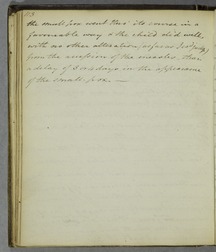 the small pox went thro' its course in a
favourable way & the child did well,
with no other alteration, as far as I could judge
from the eruption of the measles, than
a delay of 3 or 4 days in the appearance
of the small pox. —